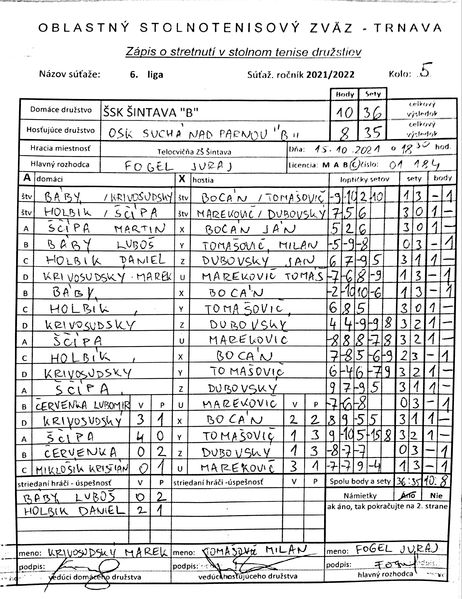 OBLASTNÝ STOLNOTENISOVÝ ZVÄZ - TRNAVA
Zápis o stretnutí v stolnom tenise družstiev
Názov súťaže: 6. liga Súťaž. ročník 2021/2022 Kolo: 5
Body Sety
Domáce družstvo ŠSK ŠINTAVA "B" 10 36 celkový výsledok
Hosťujúce družstvo OSK SUCHÁ NAD PARNOU "B" 8 35 celkový výsledok
Hracia miestnosť Telocvičňa ZŠ Šintava Dňa: 15.10.2021 o 18 30 hod.
Hlavný rozhodca FOGEL JURAJ Licencia: M A B C číslo: 01 184
A domáci X hostia loptičky setov sety body
štv BABY / KRIVOSUDSKY štv BOČAN / TOMAŠOVIČ -9 -10 2 -10 1 3 - 1
štv HOLBIK / ŠČIPA štv MAREKOVIČ / DUBOVSKY 7 5 6 3 0 1 -
A ŠČIPA MARTIN X BOČAN JÁN 5 2 6 3 0 1 -
B BABY ĽUBOŠ Y TOMAŠOVIČ, MILAN -5 -9 -8 0 3 - 1
C HOLBIK DANIEL Z DUBOVSKY JAN 6 7 -9 5 3 1 1 -
D KRIVOSUDSKY MAREK U MAREKOVIČ TOMÁŠ -7 -6 8 -9 1 3 - 1
B BABY X BOČAN -2 -10 10 -6 1 3 - 1
C HOLBIK Y TOMAŠOVIČ 6 8 5 3 0 1 -
D KRIVOSUDSKY Z DUBOVSKY 4 4 -9 -9 8 3 2 1 -
A ŠČIPA U MAREKOVIČ -8 8 8 -7 8 3 2 1 -
C HOLBIK X BOČAN 7 -8 5 -6 -9 2 3 - 1
D KRIVOSUDSKY Y TOMAŠOVIČ 6 -4 6 -7 9 3 2 1 -
A ŠČIPA Z DUBOVSKY 9 7 -9 5 3 1 1 -
B ČERVENKA ĽUBOMIR V P U MAREKOVIČ V P -7 -6 -8 0 3 - 1
D KRIVOSUDSKY 3 1 X BOČAN 2 2 8 9 -5 5 3 1 1 -
A ŠČIPA 4 0 Y TOMAŠOVIČ 1 3 9 -10 5 -15 8 3 2 1 -
B ČERVENKA 0 2 Z DUBOVSKY 1 3 -8 -7 -7 0 3 - 1
C MIKLOŠIK KRISTIAN 0 1 U MAREKOVIČ 3 1 -7 -7 9 -4 1 3 - 1
striedaní hráči - úspešnosť V P striedaní hráči - úspešnosť V P Spolu body a sety 36:35 10:8
BABY ĽUBOŠ 0 2 Námietky Áno Nie
HOLBIK DANIEL 2 1 ak áno, tak pokračujte na 2. strane
meno: KRIVOSUDSKÝ MAREK meno: TOMAŠOVIČ MILAN meno: FOGEL JURAJ
podpis: podpis: podpis:
vedúci domáceho družstva vedúci hosťujúceho družstva hlavný rozhodca